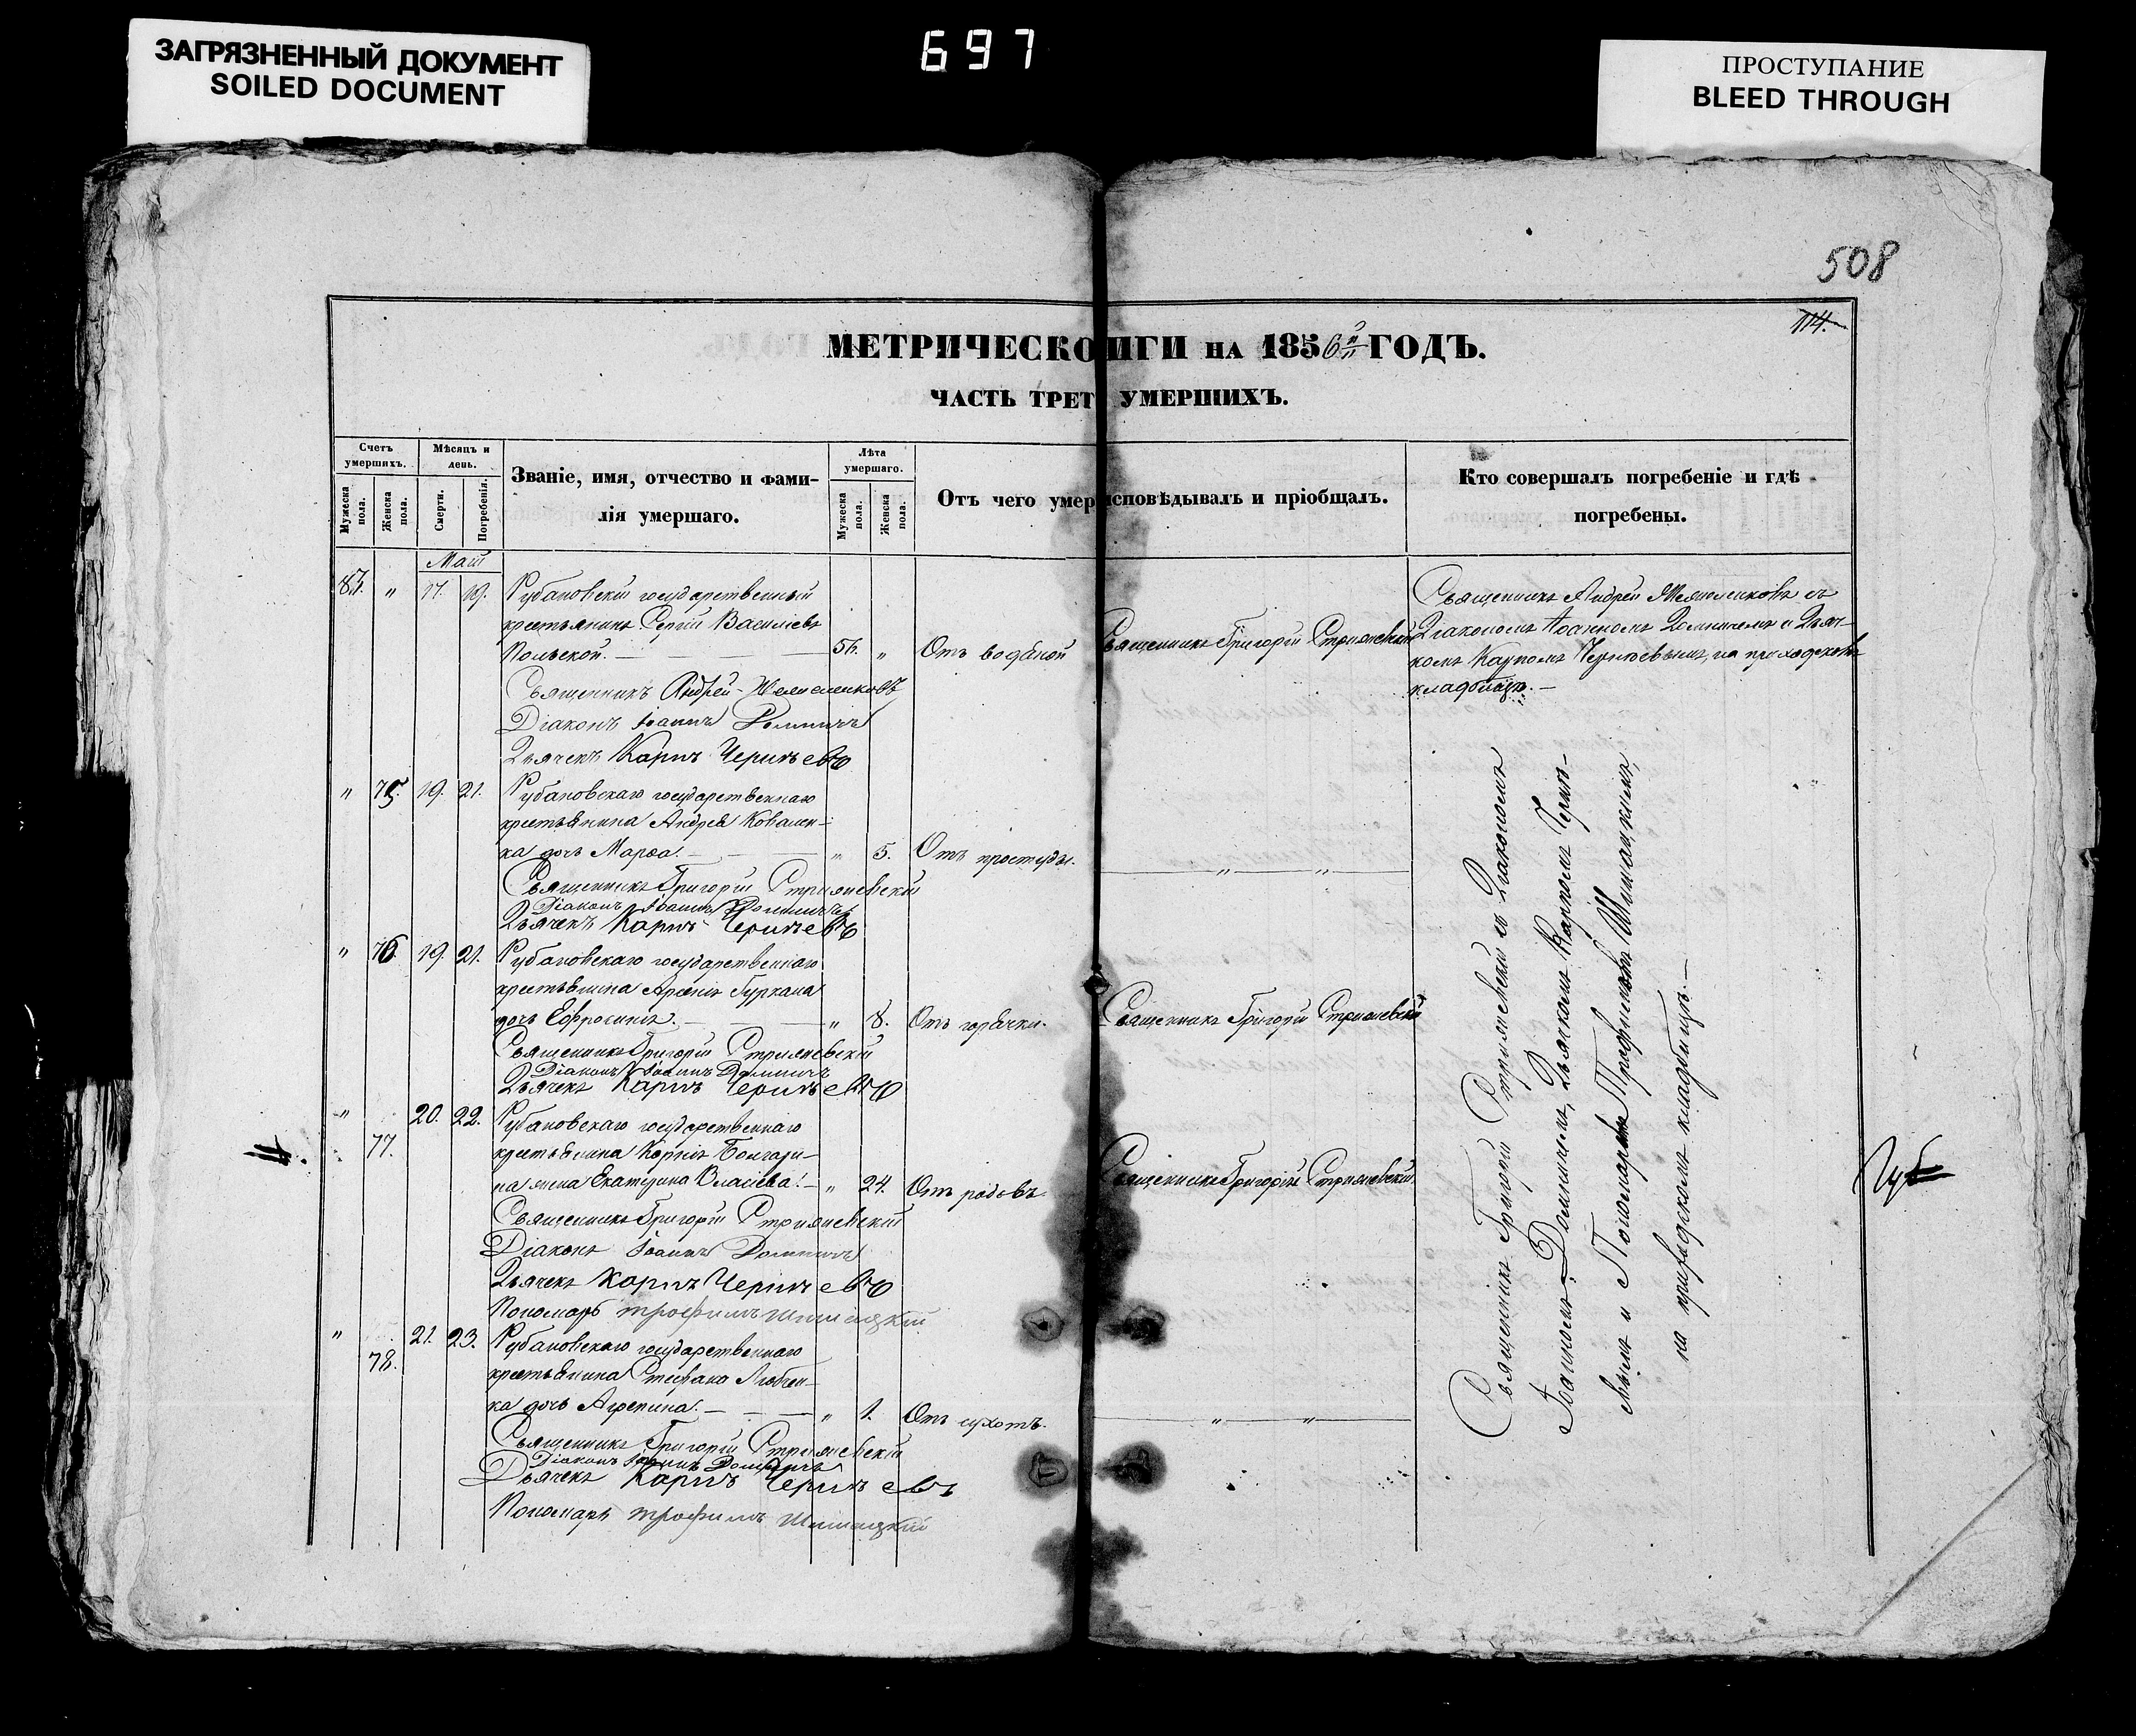 ЗАГРЯЗНЕННЫЙ ДОКУМЕНТ
SOILED DOCUMENT
697
ПРОСТУПАНИЕ
BLEED THROUGH
508
114.
МЕТРИЧЕСКО ИГИ НА 1856 й ГОДЪ.
ЧАСТЬ ТРЕТ УМЕРШИХЪ.
Счетъ умершихъ.
Мужеска пола.
Женска пола.
Мѣсяцъ и день.
Смерти.
Погребенія.
Званіе, имя, отчество и фами-
лія умершаго.
Лѣта умершаго.
Мужеска пола.
Женска пола.
Отъ чего умер
исповѣдывалъ и пріобщалъ.
Кто совершалъ погребеніе и гдѣ
погребены.
Май
83. " 17. 19. Рубановскій государственный
крестьянинъ Сергій Василіевъ
Польской. — 56. " Отъ водяной Священникъ Григорій Стрижевскій
Священникъ Андрей
Діаконъ Іоаннъ Доминичъ
Дьячекъ Карпъ Чернѣевъ
Священникъ Андрей съ
Діакономъ Іоанномъ Доминичемъ и Дьяч-
комъ Карпомъ Чернѣевымъ, на приходскомъ
кладбищѣ. —
" 75. 19. 21. Рубановскаго государственнаго
крестьянина Андрея Ковален-
ка дочь Марѳа. — " 5. Отъ простуды. — " — " —
Священникъ Григорій Стрижевскій
Діаконъ Іоаннъ Доминичъ
Дьячекъ Карпъ Чернѣевъ
" 76. 19. 21. Рубановскаго государственнаго
крестьянина Арсенія Буркана
дочь Ефросинія. — " 8. Отъ горячки. Священникъ Григорій Стрижевскій
Священникъ Григорій Стрижевскій
Діаконъ Іоаннъ Доминичъ
Дьячекъ Карпъ Чернѣевъ
" 77. 20. 22. Рубановскаго государственнаго
крестьянина Корнія Болгари-
на жена Екатерина Власіева. — " 24. Отъ родовъ. Священникъ Григорій Стрижевскій.
Священникъ Григорій Стрижевскій
Діаконъ Іоаннъ Доминичъ
Дьячекъ Карпъ Чернѣевъ
Пономарь Трофимъ Шишацкій
" 78. 21. 23. Рубановскаго государственнаго
крестьянина Стефана Любчен-
ка дочь Агрепина. — " 1. Отъ сухотъ. — " — " —
Священникъ Григорій Стрижевскій
Діаконъ Іоаннъ Доминичъ
Дьячекъ Карпъ Чернѣевъ
Пономарь Трофимъ Шишацкій
Священникъ Григорій Стрижевскій съ Діакономъ
Іоанномъ Доминичемъ, Дьячкомъ Карпомъ Чернѣ-
евымъ и Пономаремъ Трофимомъ Шишацкимъ,
на приходскомъ кладбищѣ. —